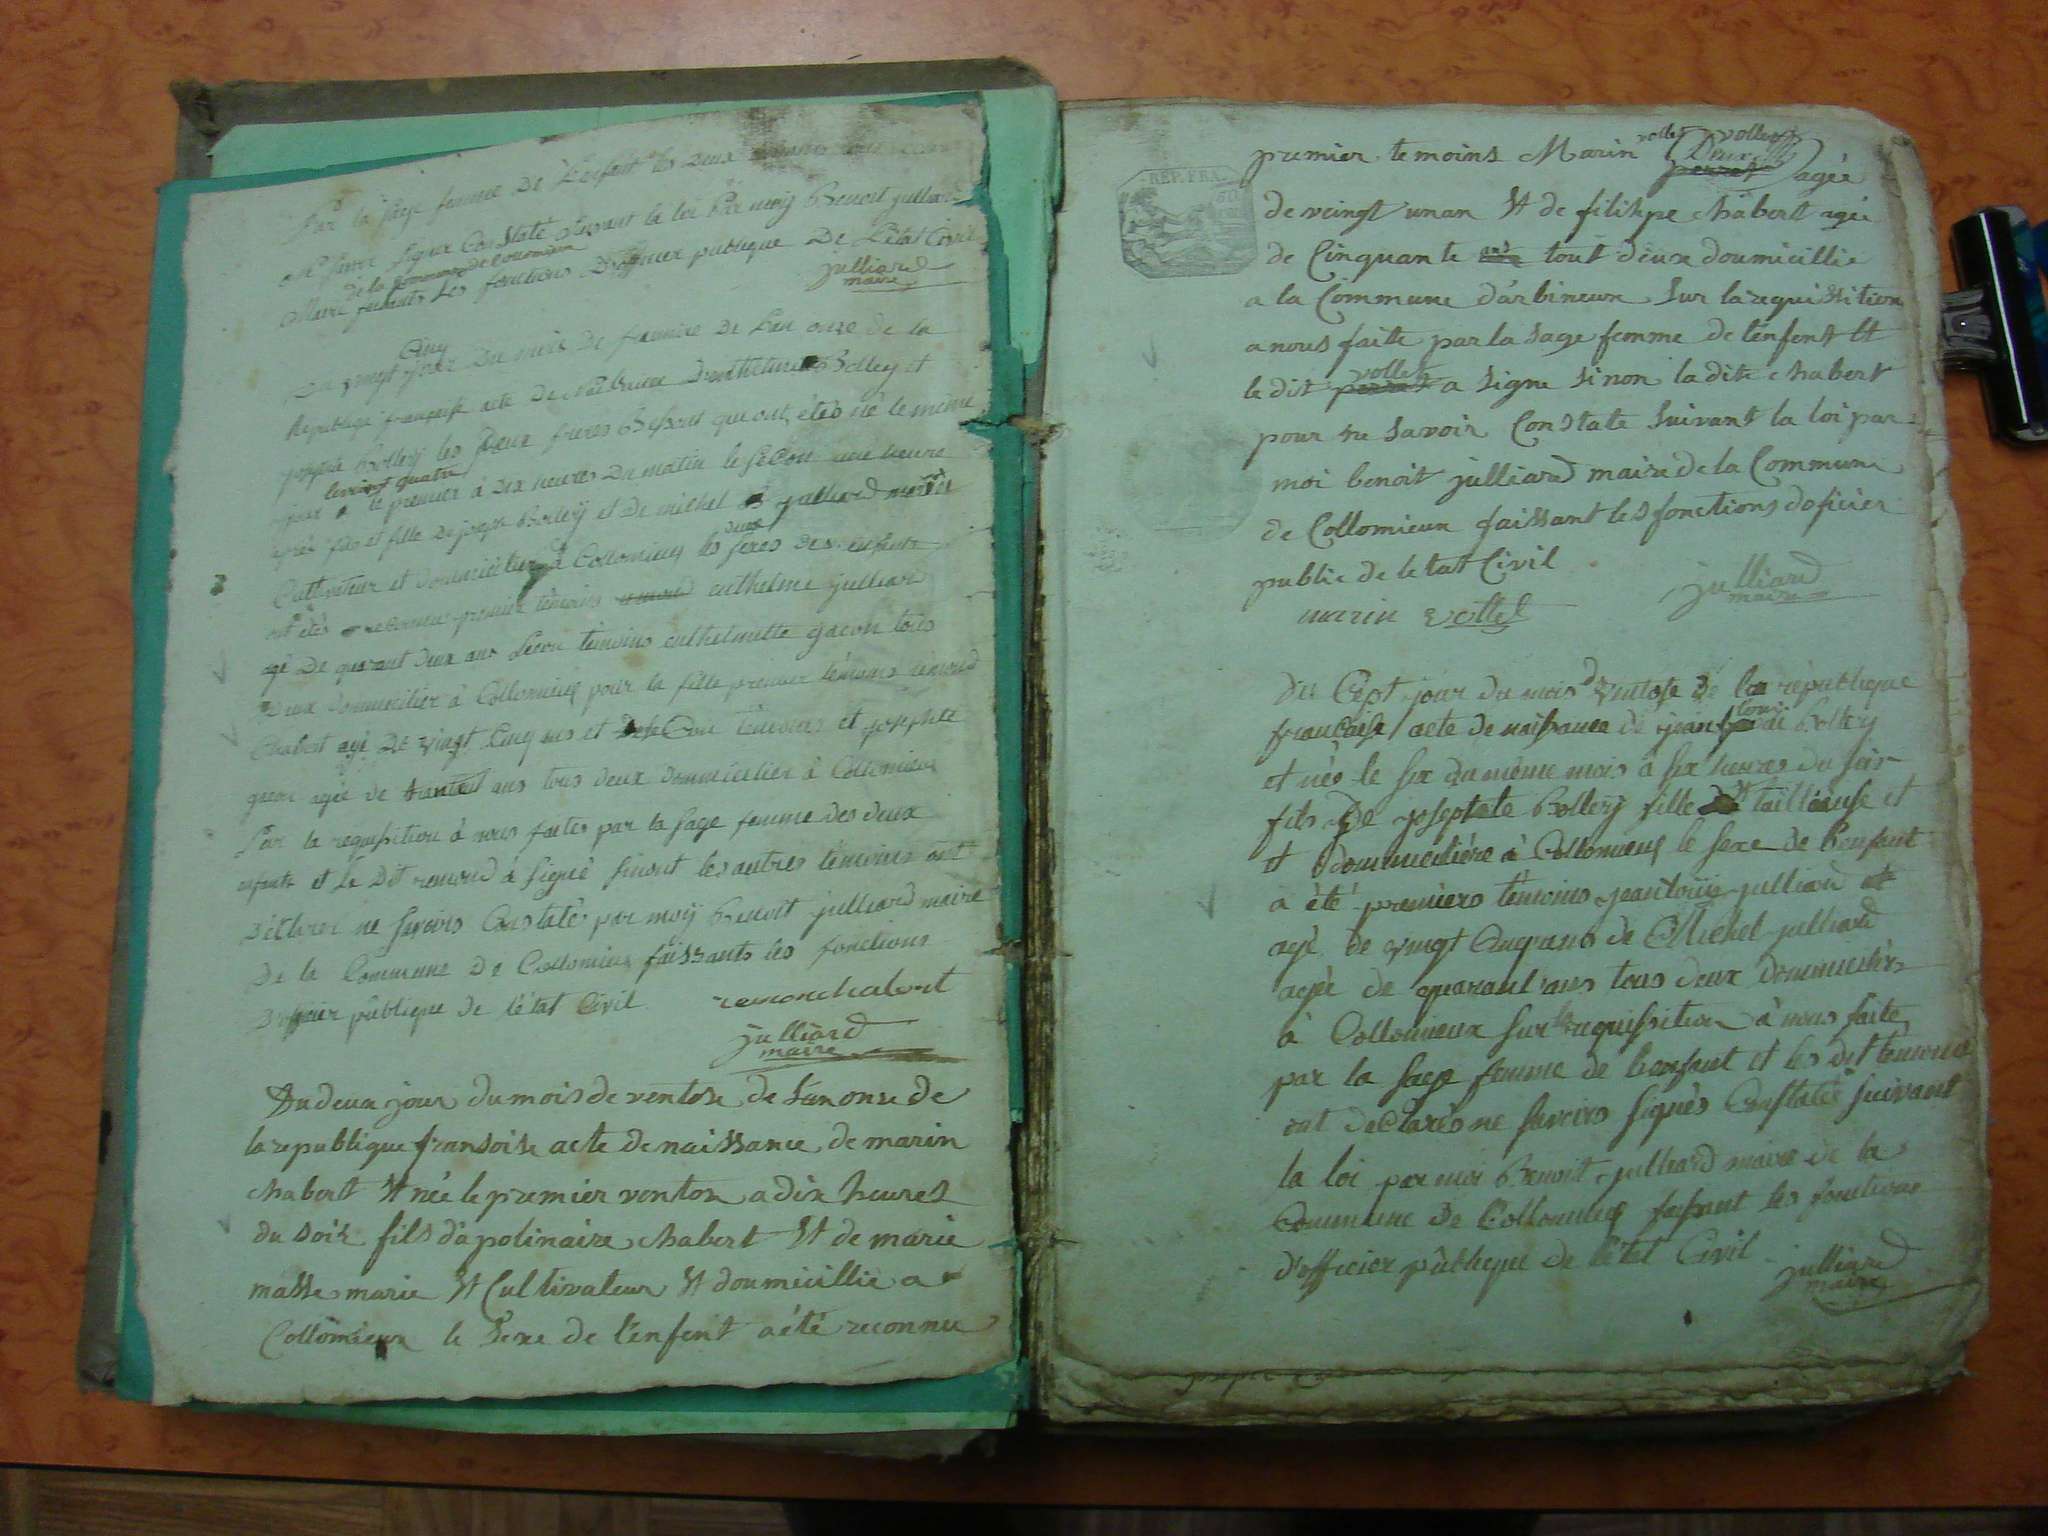 Par la sage femme De L'enfant les deux
Ne savoir signer Constaté suivant la loi Par moy Benoit julliard
de la Commune de Collomieux
Maire faisants Les fonctions D'officier publique De L'état Civil
julliard
maire
cinq
Du vingt jour Du mois de frumire De L'an onze de la
Republique françoise acte De Naissance D'anthelme Bolley et
josephte Bolley les Deux freres Bessons que ont étés né le même
le vingt quatre
jour le premier à dix heures Du matin le second une heure
après fils et fille De joseph Bolley et De michel julliard
Cultivateur et doumicilier à Collomieu les deux sexes Des enfants
ont étés reconnu premier témoins anthelme julliard
agé De quarant deux ans second témoins anthelmette gacon tous
Deux doumicilier à Collomieu pour la fille premier témoins remond
Chabert agé De vingt cinq ans et De second témoins et josephte
gacon agée de trante ans tous deux doumicilier à Collomieu
Sur la requisition à nous faites par la sage femme des deux
enfants et Le Dit remond à signé sinont les autres témoins ont
Déclarer ne savoirs Constatés par moy Benoit julliard maire
De la Commune De Collomieu faissants les fonctions
D'officier publique de l'état Civil remonchabert
julliard
maire
Du deux jour du mois de ventose de Lan onze de
la republique fransoise acte de naissance de marin
chabert Et née le premier ventose a dix heures
du soir fils d'apolinaire chabert Et de marie
masse marie Et Cultivateur Et doumicillié a
Collomieux le sexe de l'enfent a été reconnu
REP. FRA.
premier temoins Marin vollet agée
de veingt un an Et de filippe chabert agée
de Cinquante ans tout deux doumicillie
a la Commune d'arbineux sur la requisition
a nous faite par la sage femme de l'enfent Et
vollet
le dit a signe sinon la dite chabert
pour ne savoir Constate suivant la loi par
moi benoit julliard maire de la Commune
de Collomieux faissant les fonctions doficier
public de letat Civil
marin vollet julliard
maire
Du Cept jour du mois d ventose De la republique
francaise acte de naissance de jean loui Bolley
et née le six du même mois à six heures du soir
fils De josephte Bolley fille tailleuse et
et doumicilière à Collomieu le sexe de l'enfant
a été premiers témoins jean louis julliard
agé de vingt cinq ans de Michel julliard
agée de quarant ans tous deux doummiciliés
à Collomieux sur la requisition à nous faite
par la sage femme de l'enfant et les dit temoins
ont déclarés ne savoirs signés Constatée suivant
la loi par moi Benoit julliard maire de la
Commune De Collomieu fesant les fonctions
d'officier publique de l'état Civil julliard
maire